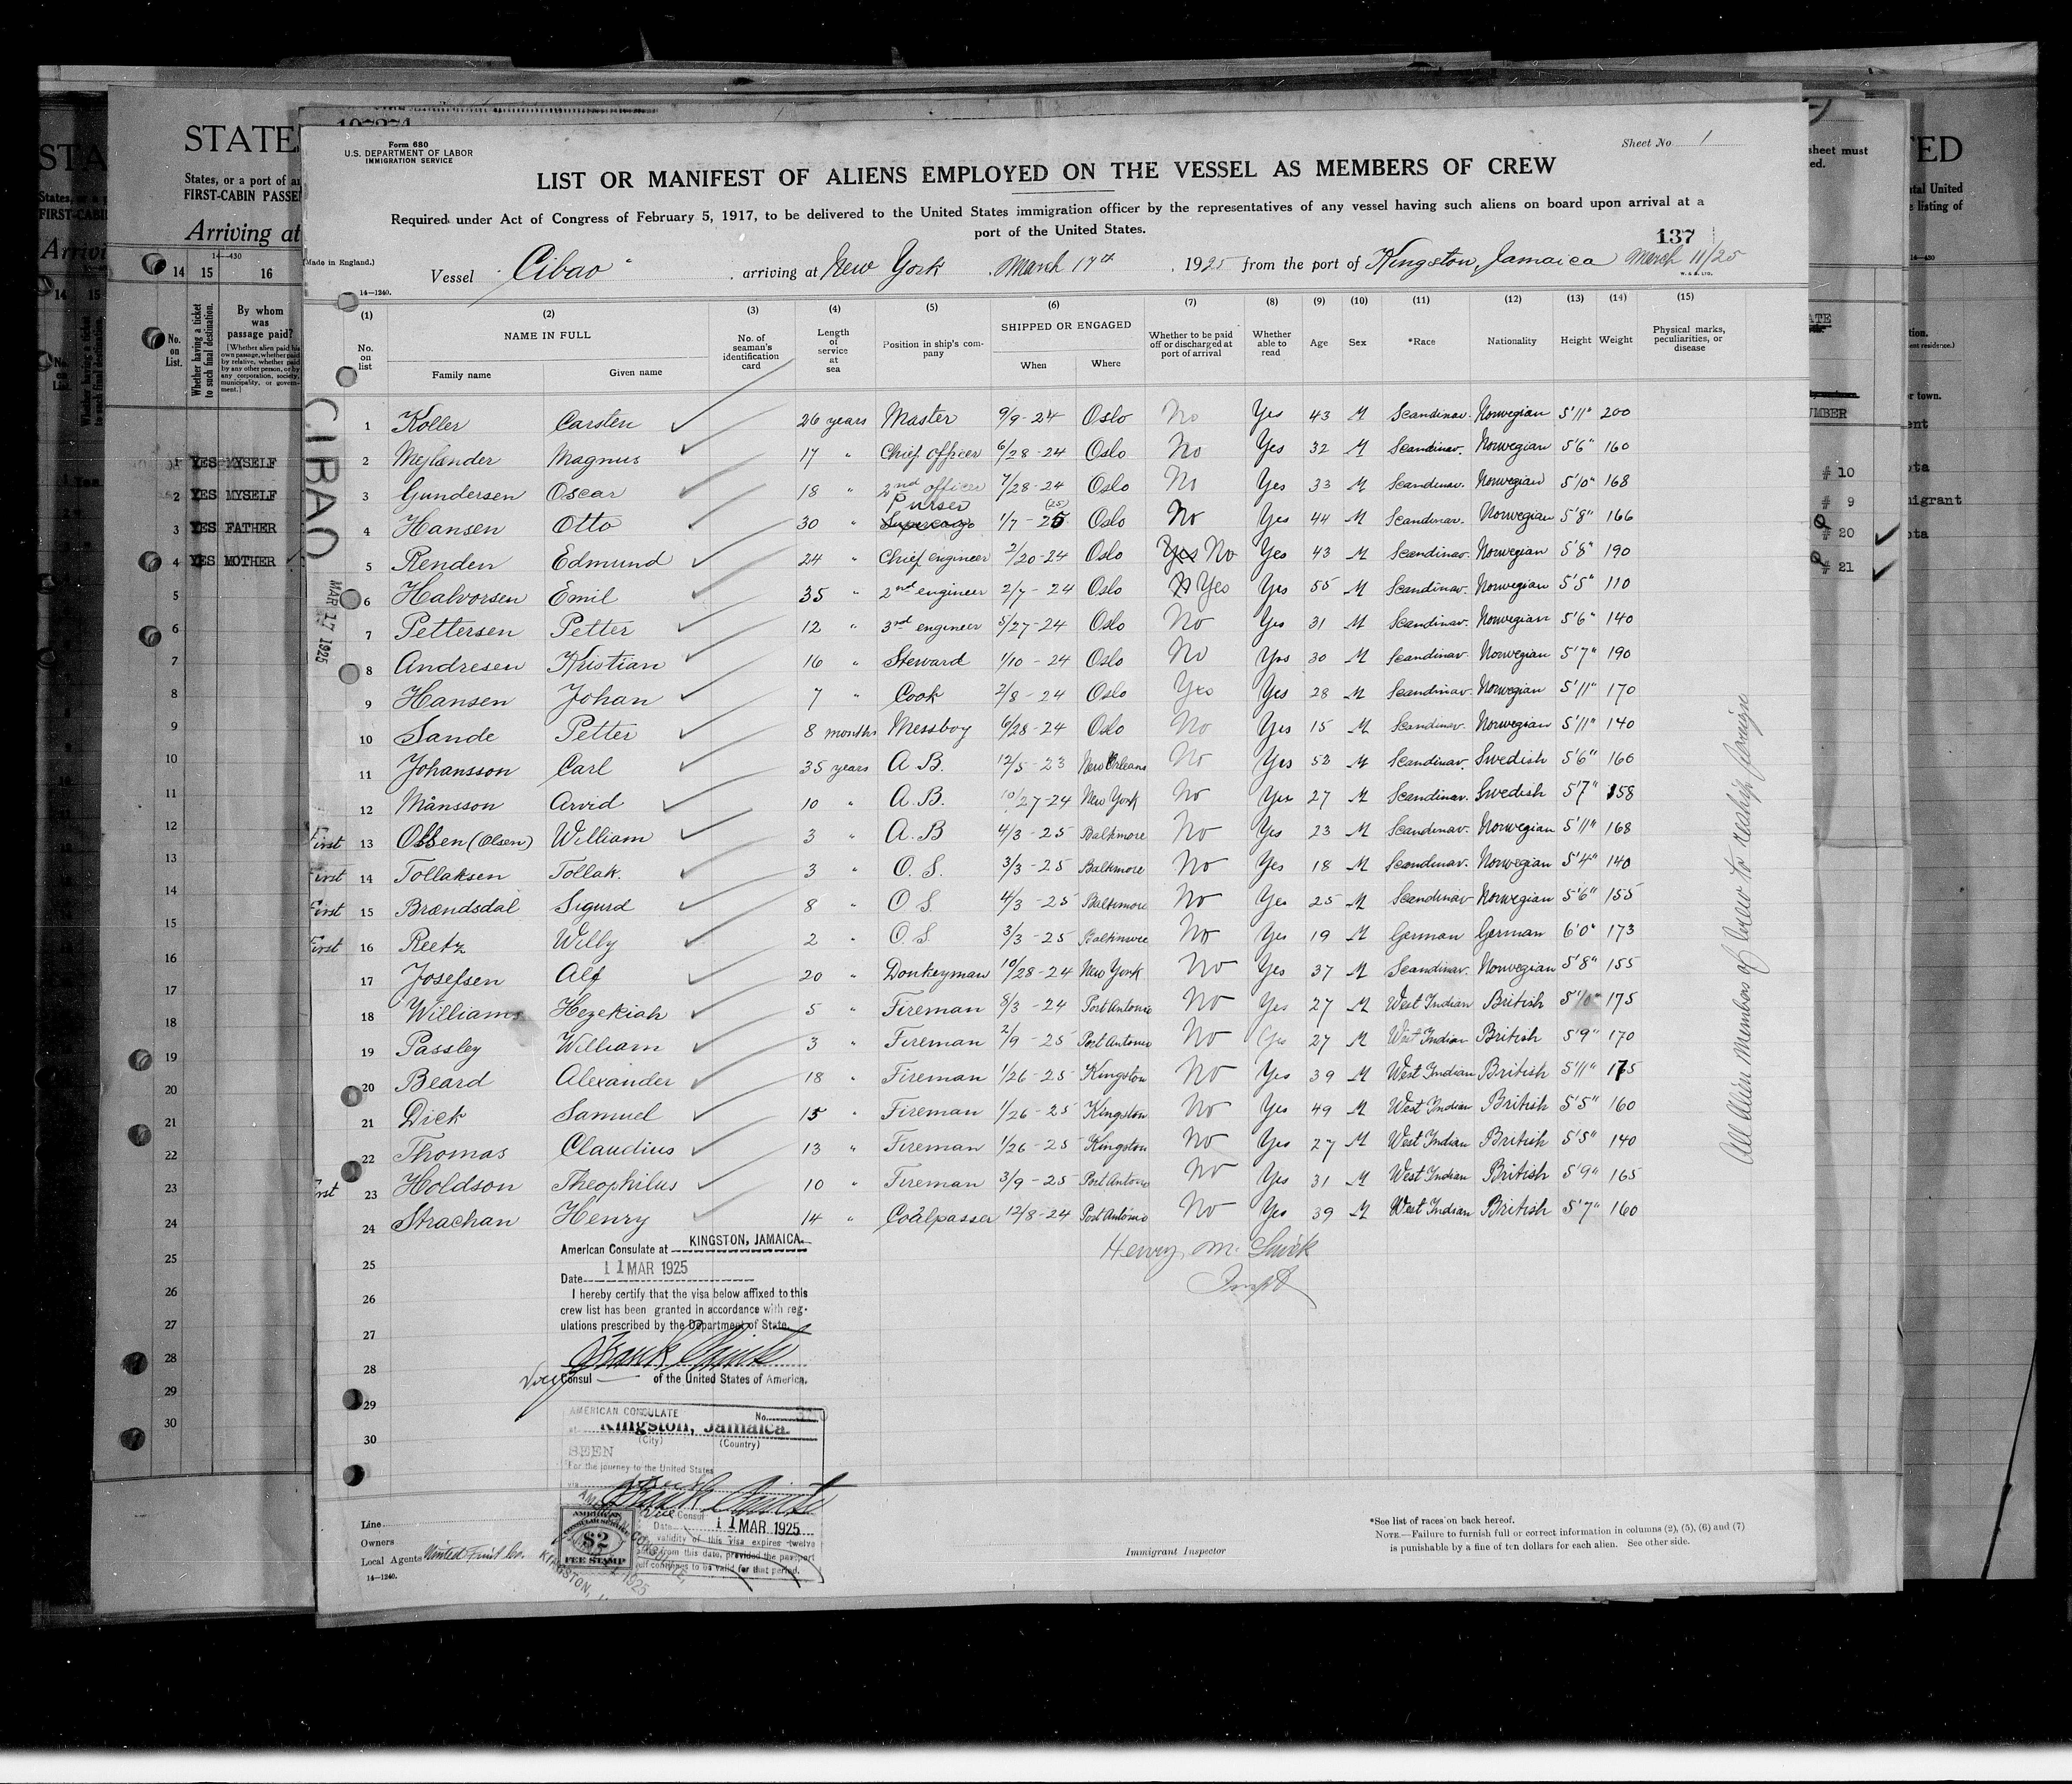 Form 680
U.S. DEPARTMENT OF LABOR
IMMIGRATION SERVICE
Sheet No 1
LIST OR MANIFEST OF ALIENS EMPLOYED ON THE VESSEL AS MEMBERS OF CREW
Required under Act of Congress of February 5, 1917, to be delivered to the United States immigration officer by the representatives of any vessel having such aliens on board upon arrival at a
port of the United States.
137
(Made in England.)
Vessel "Cibao" arriving at New York March 17th, 1925 from the port of Kingston, Jamaica March 11/25
W. & S. LTD.
14—1240.
(1) (2) (3) (4) (5) (6) (7) (8) (9) (10) (11) (12) (13) (14) (15)
No. on list
NAME IN FULL
Family name
Given name
No. of seaman's identification card
Length of service at sea
Position in ship's company
SHIPPED OR ENGAGED
When
Where
Whether to be paid off or discharged at port of arrival
Whether able to read
Age
Sex
*Race
Nationality
Height
Weight
Physical marks, peculiarities, or disease
CIBAO
MAR 17 1925
1 Koller Carsten 26 years Master 9/9-24 Oslo No Yes 43 M Scandinav. Norwegian 5'11" 200
2 Mejlænder Magnus 17 " Chief officer 6/28-24 Oslo No Yes 32 M Scandinav. Norwegian 5'6" 160
3 Gundersen Oscar 18 " 2nd officer 7/28-24 Oslo No Yes 33 M Scandinav. Norwegian 5'10" 168
4 Hansen Otto 30 " Purser Supercargo 1/7-25 (25) Oslo No Yes 44 M Scandinav. Norwegian 5'8" 166
5 Renden Edmund 24 " Chief engineer 2/20-24 Oslo Yes No Yes 43 M Scandinav. Norwegian 5'8" 190
6 Halvorsen Emil 35 " 2nd engineer 2/7-24 Oslo Yes Yes 55 M Scandinav. Norwegian 5'5" 110
7 Pettersen Petter 12 " 3rd engineer 5/27-24 Oslo No Yes 31 M Scandinav. Norwegian 5'6" 140
8 Andresen Kristian 16 " Steward 1/10-24 Oslo No Yes 30 M Scandinav. Norwegian 5'7" 190
9 Hansen Johan 7 " Cook 2/8-24 Oslo Yes Yes 28 M Scandinav. Norwegian 5'11" 170
10 Sande Petter 8 months Messboy 6/28-24 Oslo No Yes 15 M Scandinav. Norwegian 5'11" 140
11 Johansson Carl 35 years A.B. 12/5-23 New Orleans No Yes 53 M Scandinav. Swedish 5'6" 160
12 Månsson Arvid 10 " A.B. 10/27-24 New York No Yes 27 M Scandinav. Swedish 5'7" 158
First 13 Olssen (Olsen) William 3 " A.B 4/3-25 Baltimore No Yes 23 M Scandinav. Norwegian 5'11" 168
First 14 Tollaksen Tollak. 3 " O.S. 3/3-25 Baltimore No Yes 18 M Scandinav. Norwegian 5'4" 140
First 15 Brændsdal Sigurd 8 " O.S. 4/3-25 Baltimore No Yes 25 M Scandinav Norwegian 5'6" 155
First 16 Reetz Willy 2 " O.S. 3/3-25 Baltimore No Yes 19 M German German 6'0" 173
17 Josefsen Alf 20 " Donkeyman 10/28-24 New York No Yes 37 M Scandinav. Norwegian 5'8" 155
18 Williams Hezekiah 5 " Fireman 8/3-24 Port Antonio No Yes 27 M West Indian British 5'10" 175
19 Passley William 3 " Fireman 2/9-25 Port Antonio No Yes 27 M West Indian British 5'9" 170
20 Beard Alexander 18 " Fireman 1/26-25 Kingston No Yes 39 M West Indian British 5'11" 175
21 Dick Samuel 15 " Fireman 1/26-25 Kingston No Yes 49 M West Indian British 5'5" 160
22 Thomas Claudius 13 " Fireman 1/26-25 Kingston No Yes 27 M West Indian British 5'5" 140
First 23 Holdson Theophilus 10 " Fireman 3/9-25 Port Antonio No Yes 31 M West Indian British 5'9" 165
24 Strachan Henry 14 " Coalpasser 12/8-24 Port Antonio No Yes 39 M West Indian British 5'7" 160
25
26
27
28
29
30
All Alien members of crew to reship foreign
Henry M.
American Consulate at KINGSTON, JAMAICA.
Date 11 MAR 1925
I hereby certify that the visa below affixed to this
crew list has been granted in accordance with reg-
ulations prescribed by the Department of State.
Vice Consul of the United States of America.
AMERICAN CONSULATE No.
at Kingston, Jamaica.
(City) (Country)
SEEN
For the journey to the United States
Vice Consul
Date 11 MAR 1925
validity of this visa expires twelve
from this date, provided the passport
continues to be valid for that period.
AMERICAN
CONSULAR SERVICE
$2
FEE STAMP
Line
Owners
Local Agents United Fruit Co.
14—1240.
Immigrant Inspector
*See list of races on back hereof.
NOTE.—Failure to furnish full or correct information in columns (2), (5), (6) and (7)
is punishable by a fine of ten dollars for each alien. See other side.
STATES
States, or a port of
FIRST-CABIN
Arriving at
14—430
14 15 16
No. on List.
Whether having a ticket to such final destination.
By whom was passage paid?
1 YES MYSELF
2 YES MYSELF
3 YES FATHER
4 YES MOTHER
# 10
# 9
# 20
# 21